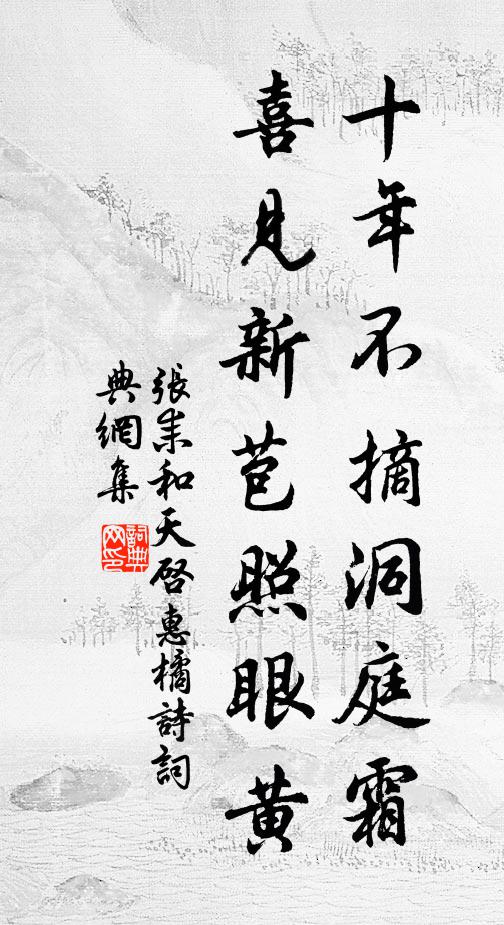 十年不摘洞庭霜
喜見新苞照眼黃
張耒和天啓惠橘詩詞
典網集
詞典
网印